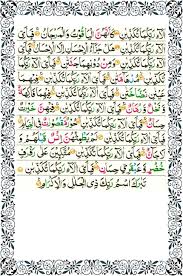 اٰلَآءِ رَبِّكُمَا تُكَذِّبٰنِ ۝ كَاَنَّهُنَّ الْيَاقُوْتُ وَالْمَرْجَانُ ۝ فَبِاَيِّ
اٰلَآءِ رَبِّكُمَا تُكَذِّبٰنِ ۝ هَلْ جَزَآءُ الْاِحْسَانِ اِلَّا الْاِحْسَانُ ۝ فَبِاَيِّ
اٰلَآءِ رَبِّكُمَا تُكَذِّبٰنِ ۝ وَمِنْ دُوْنِهِمَا جَنَّتٰنِ ۝ فَبِاَيِّ اٰلَآءِ
رَبِّكُمَا تُكَذِّبٰنِ ۝ مُدْهَآمَّتٰنِ ۝ فَبِاَيِّ اٰلَآءِ رَبِّكُمَا تُكَذِّبٰنِ ۝ فِيْهِمَا
عَيْنٰنِ نَضَّاخَتٰنِ ۝ فَبِاَيِّ اٰلَآءِ رَبِّكُمَا تُكَذِّبٰنِ ۝ فِيْهِمَا فَاكِهَةٌ
وَّنَخْلٌ وَّرُمَّانٌ ۝ فَبِاَيِّ اٰلَآءِ رَبِّكُمَا تُكَذِّبٰنِ ۝ فِيْهِنَّ خَيْرٰتٌ
حِسَانٌ ۝ فَبِاَيِّ اٰلَآءِ رَبِّكُمَا تُكَذِّبٰنِ ۝ حُوْرٌ مَّقْصُوْرٰتٌ فِى الْخِيَامِ ۝
فَبِاَيِّ اٰلَآءِ رَبِّكُمَا تُكَذِّبٰنِ ۝ لَمْ يَطْمِثْهُنَّ اِنْسٌ قَبْلَهُمْ وَلَا
جَآنٌّ ۝ فَبِاَيِّ اٰلَآءِ رَبِّكُمَا تُكَذِّبٰنِ ۝ مُتَّكِـِٕيْنَ عَلٰى رَفْرَفٍ
خُضْرٍ وَّعَبْقَرِيٍّ حِسَانٍ ۝ فَبِاَيِّ اٰلَآءِ رَبِّكُمَا تُكَذِّبٰنِ ۝
تَبٰرَكَ اسْمُ رَبِّكَ ذِى الْجَلٰلِ وَالْاِكْرَامِ ۝